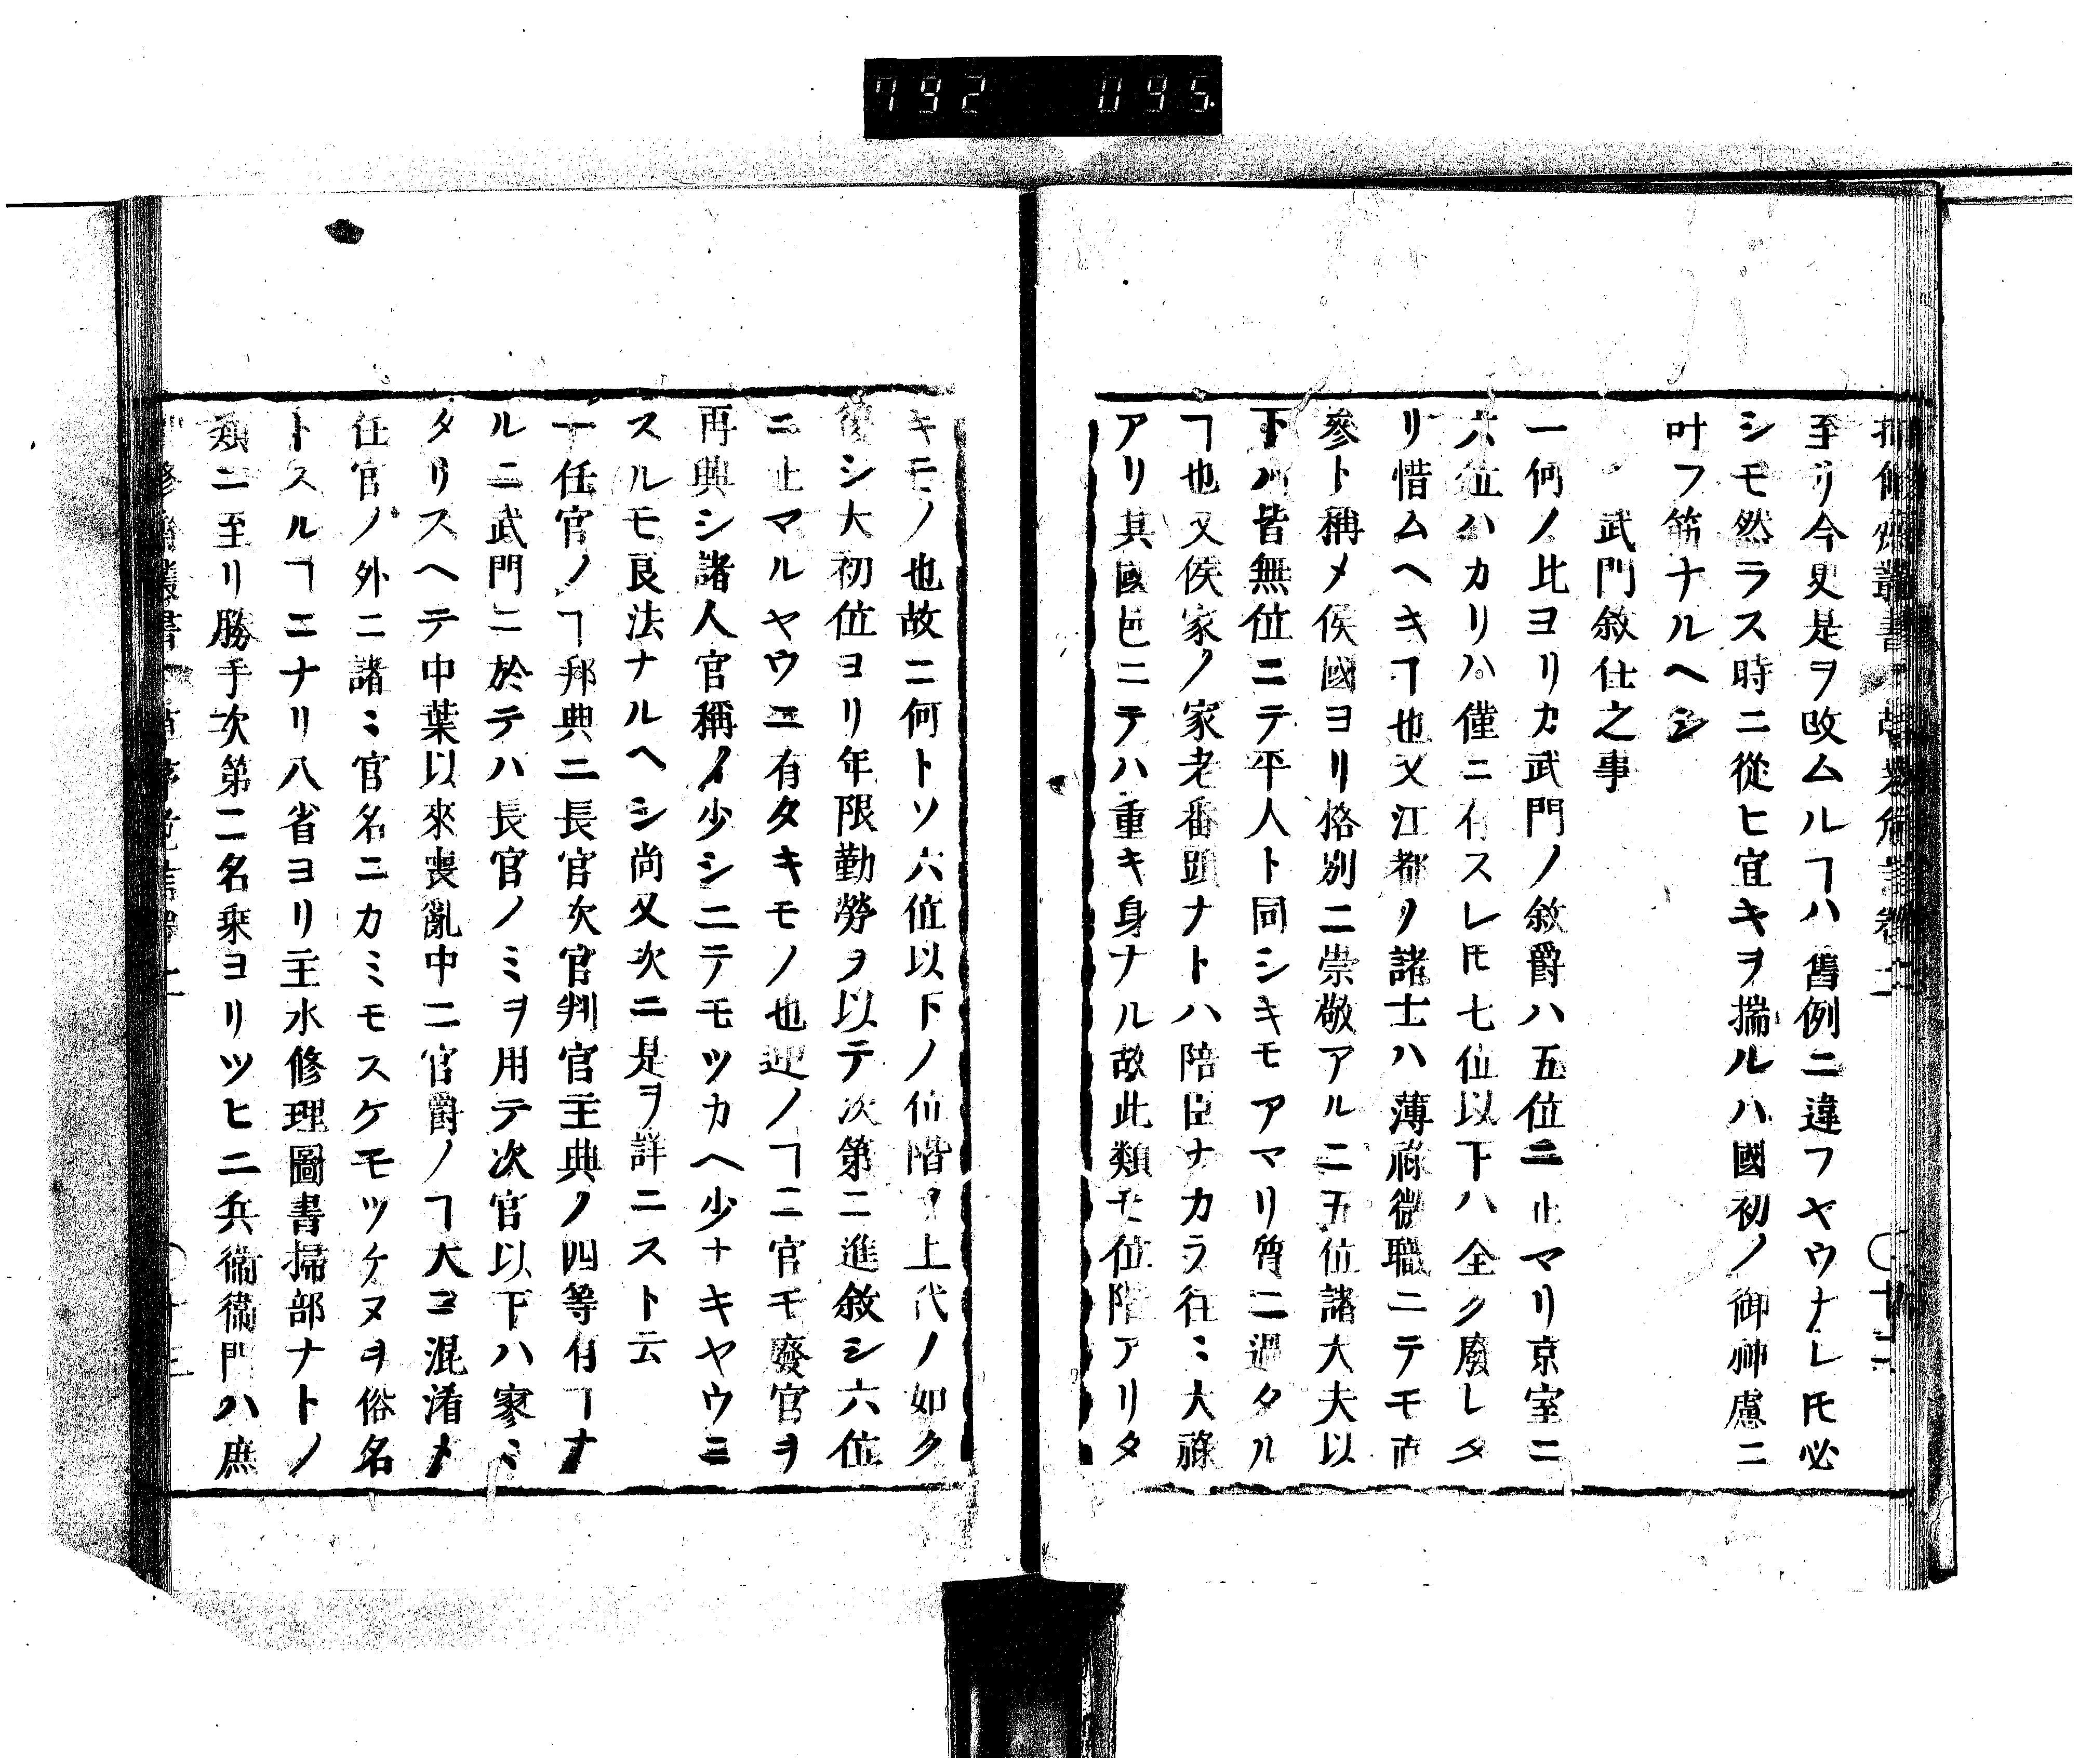 792 095
至リ今更是ヲ改ムルヿハ舊例ニ違フヤウナレ𪜈必
シモ然ラス時ニ從ヒ宜キヲ揣ルハ國初ノ御神慮ニ
叶フ筋ナルヘシ
武門敘仕之事
一何ノ比ヨリカ武門ノ敘爵ハ五位ニ止マリ京室ニ
六位ハカリハ僅ニ存スレ𪜈七位以下ハ全ク廢レタ
リ惜ムヘキヿ也又江都ノ諸士ハ薄祿微職ニテモ直
參ト稱メ侯國ヨリ格別ニ崇敬アルニ五位諸大夫以
下ハ皆無位ニテ平人ト同シキモアマリ質ニ過タル
ヿ也又侯家ノ家老番頭ナトハ陪臣ナカラ往ミ大祿
アリ其國邑ニテハ重キ身ナル故此類モ位階アリタ
キモノ也故ニ何トソ六位以下ノ位階ヲ上代ノ如ク
復シ大初位ヨリ年限勤勞ヲ以テ次第ニ進敘シ六位
ニ止マルヤウニ有タキモノ也迚ノヿニ官モ廢官ヲ
再興シ諸人官稱ノ少シニテモツカヘ少ナキヤウニ
スルモ良法ナルヘシ尚又次ニ是ヲ詳ニスト云
一任官ノヿ邦典ニ長官次官判官主典ノ四等有ヿナ
ルニ武門ニ於テハ長官ノミヲ用テ次官以下ハ寥ミ
タリスヘテ中葉以來喪亂中ニ官爵ノヿ大ニ混淆ト
任官ノ外ニ諸ミ官名ニカミモスケモツケヌヲ俗名
トスルヿニナリ八省ヨリ主水修理圖書掃部ナトノ
類ニ至リ勝手次第ニ名乘ヨリツヒニ兵衞衞門ハ庶